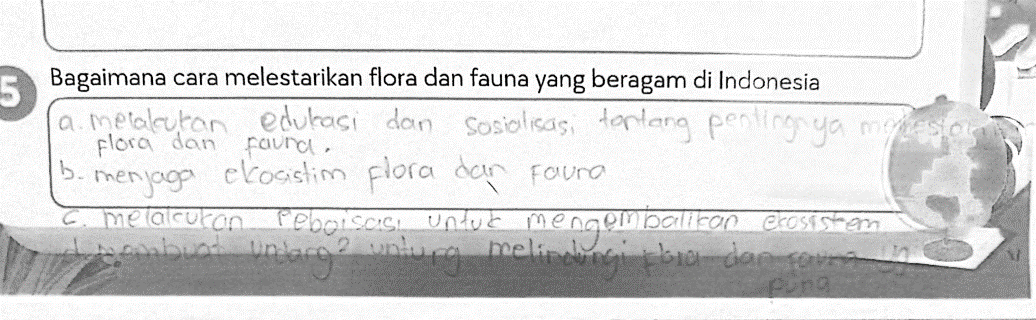 5
Bagaimana cara melestarikan flora dan fauna yang beragam di Indonesia
a. melakukan edukasi dan sosialisasi tentang pentingnya melestari
flora dan fauna.
b. menjaga ekosistim flora dan fauna
c. melakukan reboisasi untuk mengembalikan ekosistem
d. membuat undang² untung melindungi flora dan fauna yg
puna